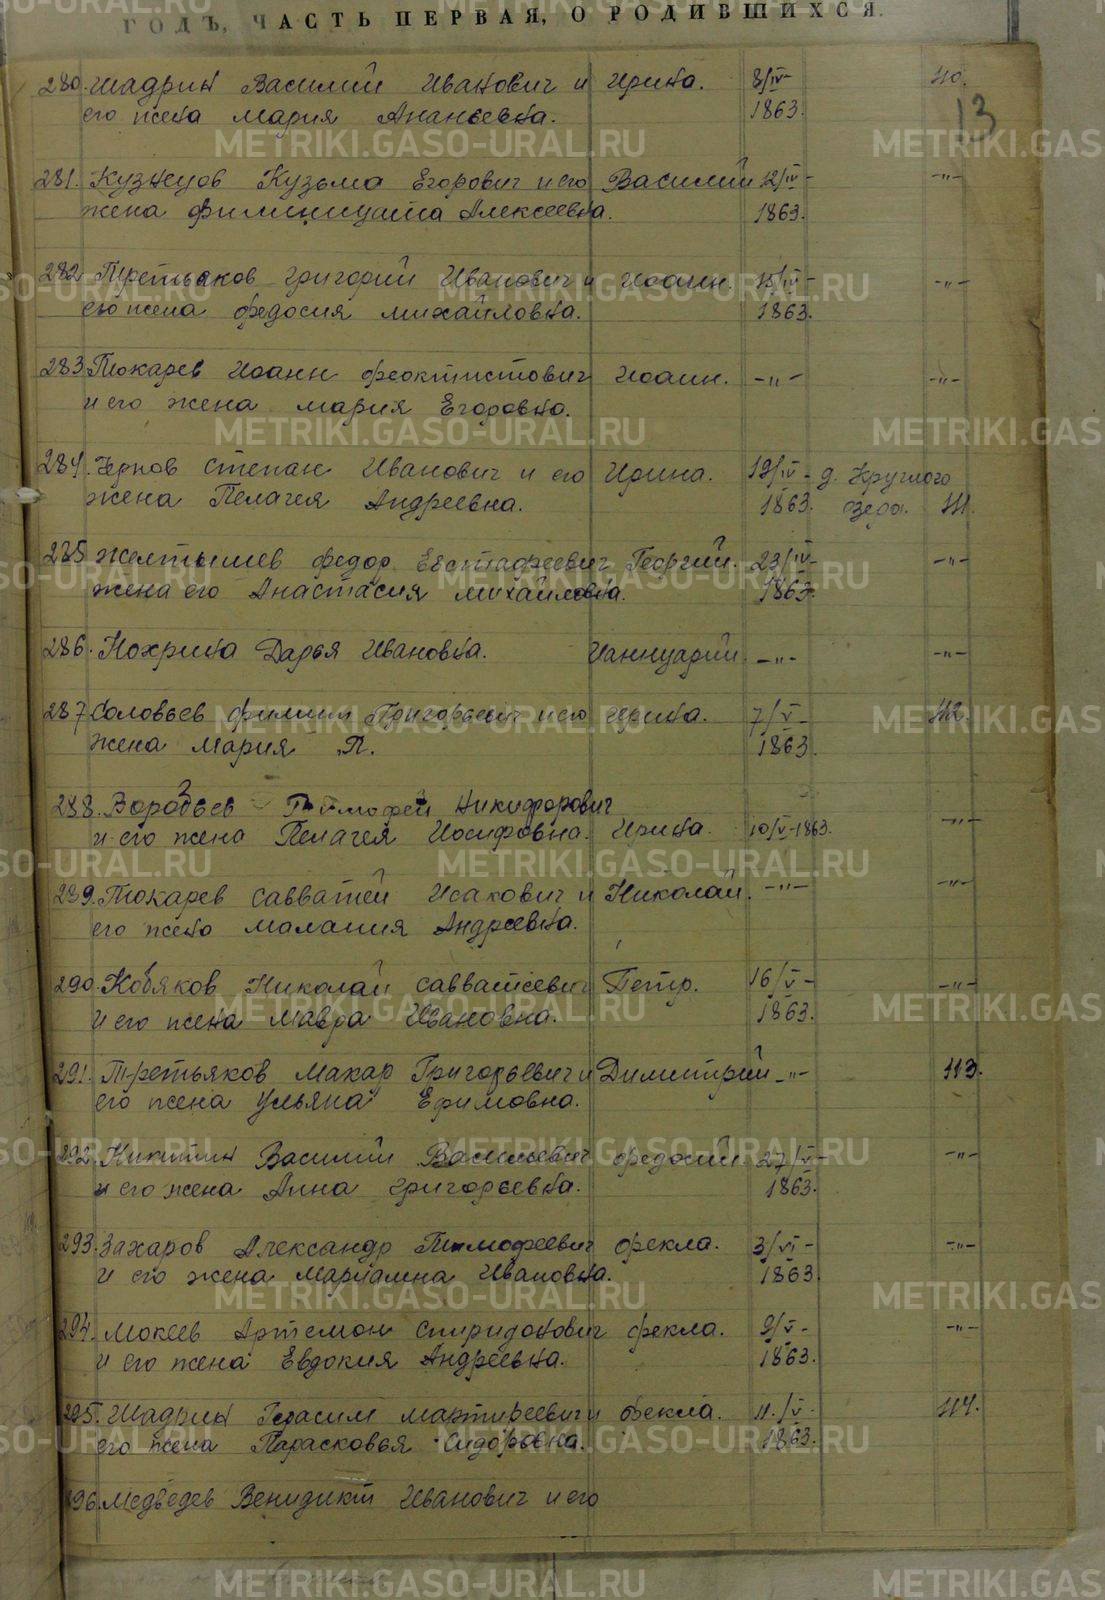 ГОДЪ, ЧАСТЬ ПЕРВАЯ, О РОДИВШИХСЯ.
13
280. Шадрин Василий Иванович и Ирина. 8/IV- 110.
его жена Мария Ананьевна. 1863.
281. Кузнецов Кузьма Егорович и его Василий 12/IV- -"-
жена Алексеевна. 1863.
282 Третьяков Григорий Иванович и Иоанн. 15/IV- -"-
его жена Федосия Михайловна. 1863.
283 Токарев Иоанн Феоктистович Иоанн. -"- -"-
и его жена Мария Егоровна.
284. Чернов Степан Иванович и его Ирина. 19/IV- д. Круглого
жена Пелагея Андреевна. 1863. озера. 111.
285 Желтышев Федор Евстафеевич Георгий. 23/IV- -"-
жена его Анастасия Михайловна. 1863.
286. Нохрина Дарья Ивановна. Ианнуарий -"- -"-
287 Соловьев Филипп Григорьевич и его Ирина. 7/V- 112.
жена Мария П. 1863.
288. Воробьев Тимофей Никифорович
и его жена Пелагея Иосифовна. Ирина. 10/V-1863. -"-
289. Токарев Савватей Исакович и Николай. -"- -"-
его жена Малания Андреевна.
290. Кобяков Николай Савватеевич Петр. 16/V- -"-
и его жена Мавра Ивановна. 1863.
291. Третьяков Макар Григорьевич и Димитрий -"- 113.
его жена Ульяна Ефимовна.
292. Никитин Василий Васильевич Федосий 27/V- -"-
и его жена Анна Григорьевна. 1863.
293. Захаров Александр Тимофеевич Фекла. 3/VI- -"-
и его жена Мариамна Ивановна. 1863
294. Мокеев Артемон Спиридонович Фекла. 9/V- -"-
и его жена Евдокия Андреевна. 1863.
295. Шадрин Герасим Мартиреевич и Фекла. 11./V- 114.
его жена Парасковья Сидоровна. 1863.
296. Медведев Венидикт Иванович и его
METRIKI.GASO-URAL.RU